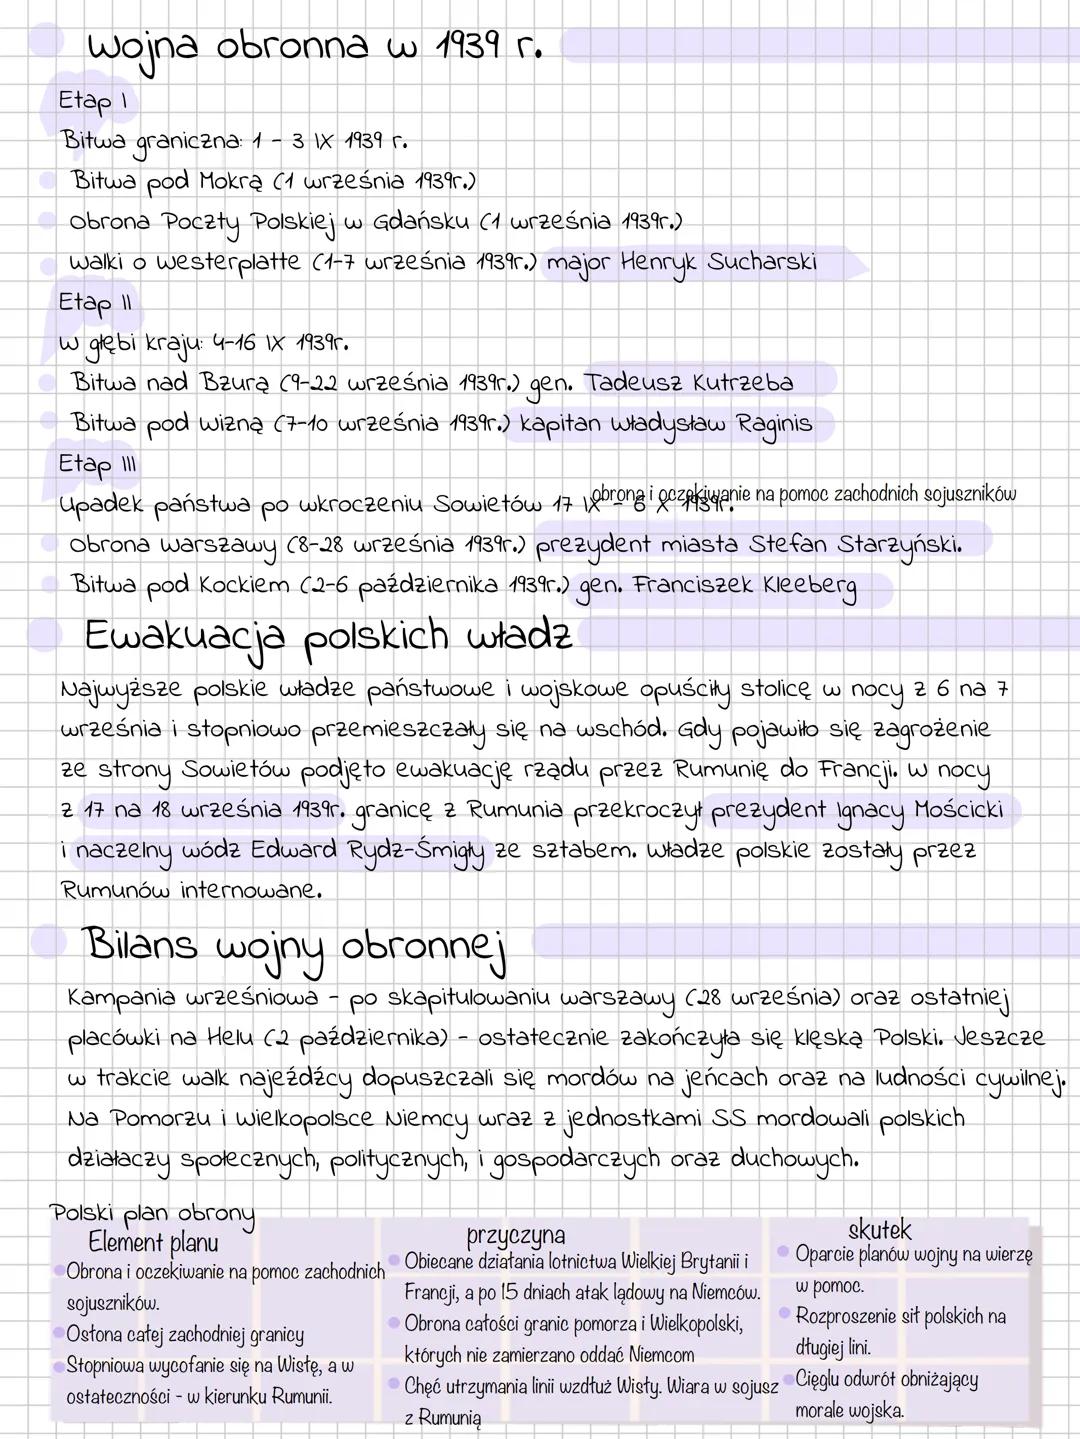 Wojna obronna w 1939 r.
Etap I
Bitwa graniczna: 1 - 3 IX 1939 r.
Bitwa pod Mokrą (1 września 1939r.)
Obrona Poczty Polskiej w Gdańsku (1 września 1939r.)
Walki o Westerplatte (1-7 września 1939r.) major Henryk Sucharski
Etap II
W głębi kraju: 4-16 IX 1939r.
Bitwa nad Bzurą (9-22 września 1939r.) gen. Tadeusz Kutrzeba
Bitwa pod Wizną (7-10 września 1939r.) kapitan Władysław Raginis
Etap III
obrona i oczekiwanie na pomoc zachodnich sojuszników
Upadek państwa po wkroczeniu Sowietów 17 IX - 6 X 1939r.
Obrona Warszawy (8-28 września 1939r.) prezydent miasta Stefan Starzyński.
Bitwa pod Kockiem (2-6 października 1939r.) gen. Franciszek Kleeberg
Ewakuacja polskich władz
Najwyższe polskie władze państwowe i wojskowe opuściły stolicę w nocy z 6 na 7
września i stopniowo przemieszczały się na wschód. Gdy pojawiło się zagrożenie
ze strony Sowietów podjęto ewakuację rządu przez Rumunię do Francji. W nocy
z 17 na 18 września 1939r. granicę z Rumunia przekroczył prezydent Ignacy Mościcki
i naczelny wódz Edward Rydz-Śmigły ze sztabem. Władze polskie zostały przez
Rumunów internowane.
Bilans wojny obronnej
Kampania wrześniowa - po skapitulowaniu warszawy (28 września) oraz ostatniej
placówki na Helu (2 października) - ostatecznie zakończyła się klęską Polski. Jeszcze
w trakcie walk najeźdźcy dopuszczali się mordów na jeńcach oraz na ludności cywilnej.
Na Pomorzu i Wielkopolsce Niemcy wraz z jednostkami SS mordowali polskich
działaczy społecznych, politycznych, i gospodarczych oraz duchowych.
Polski plan obrony
Element planu
Obrona i oczekiwanie na pomoc zachodnich
sojuszników.
Osłona całej zachodniej granicy
Stopniowa wycofanie się na Wisłę, a w
ostateczności - w kierunku Rumunii.
przyczyna
Obiecane działania lotnictwa Wielkiej Brytanii i
Francji, a po 15 dniach atak lądowy na Niemców.
Obrona całości granic pomorza i Wielkopolski,
których nie zamierzano oddać Niemcom
Chęć utrzymania linii wzdłuż Wisły. Wiara w sojusz
z Rumunią
skutek
Oparcie planów wojny na wierzę
w pomoc.
Rozproszenie sił polskich na
długiej lini.
Cięglu odwrót obniżający
morale wojska.